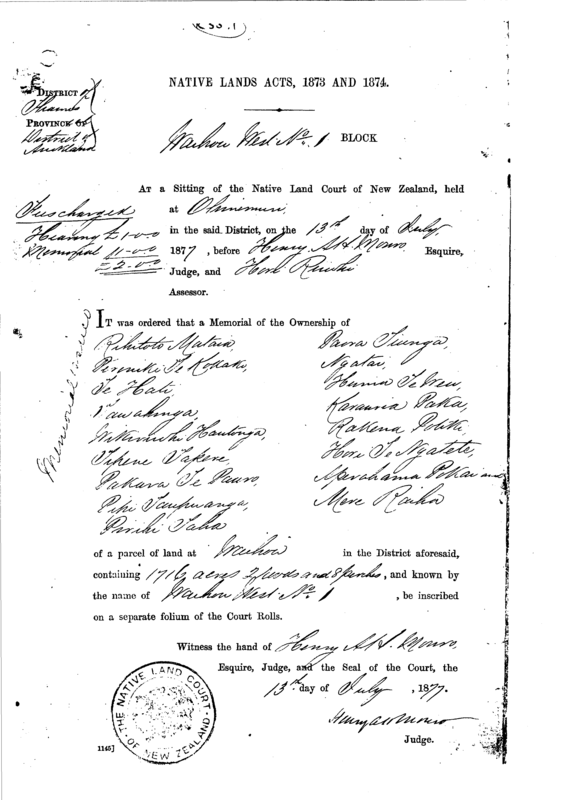 NATIVE LANDS ACTS, 1873 AND 1874.
DISTRICT of
Thames
PROVINCE OF
District of
Auckland
Waihou West No. 1 BLOCK
AT a Sitting of the Native Land Court of New Zealand, held
at Ohinemuri
in the said District, on the 13th day of July,
1877, before Henry A H. Monro Esquire,
Judge, and Hori
Assessor.
Fees charged
Hearing £1-0-0
Memorial 1-0-0
£2.0.0
Memorial issued
IT was ordered that a Memorial of the Ownership of
Rihitoto Mataia,
Te Hati,
Hautonga,
Tipene
Pakara Te Pauro,
Pirihi Taha
Paora Tiunga,
Ngatai,
Karauria
Rakena
Hori Te Ngatete,
Marahama Pokai and
Mere
of a parcel of land at Waihou in the District aforesaid,
containing 1716 acres 2 roods and 8 perches, and known by
the name of Waihou West No. 1, be inscribed
on a separate folium of the Court Rolls.
Witness the hand of Henry A H. Monro,
Esquire, Judge, and the Seal of the Court, the
13th day of July, 1877.
Henry A H Monro
Judge.
THE NATIVE LAND COURT OF NEW ZEALAND
1145]